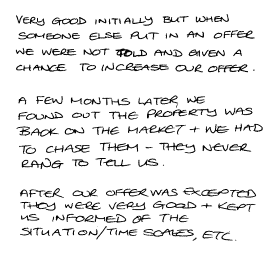 VERY GOOD INITIALLY BUT WHEN
SOMEONE ELSE PUT IN AN OFFER
WE WERE NOT TOLD AND GIVEN A
CHANCE TO INCREASE OUR OFFER.
A FEW MONTHS LATER, WE
FOUND OUT THE PROPERTY WAS
BACK ON THE MARKET + WE HAD
TO CHASE THEM - THEY NEVER
RANG TO TELL US.
AFTER OUR OFFER WAS EXCEPTED
THEY WERE VERY GOOD + KEPT
US INFORMED OF THE
SITUATION/TIME SCALES, ETC.